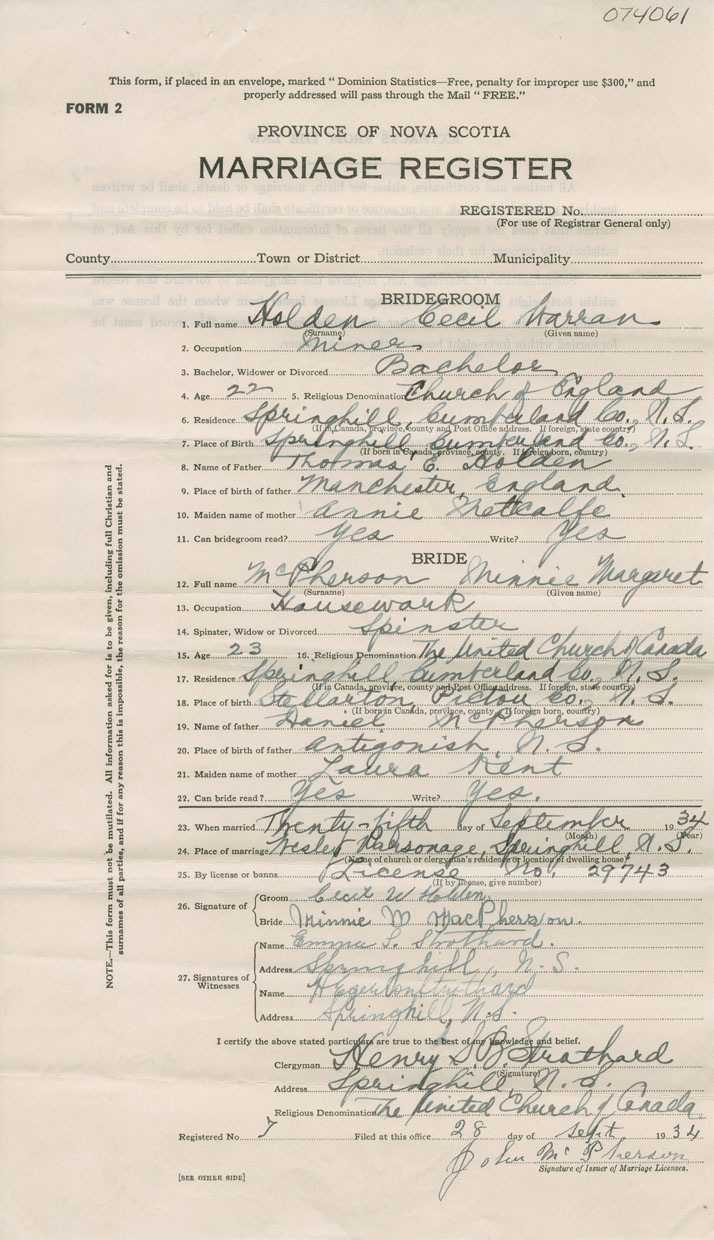 074061
This form, if placed in an envelope, marked "Dominion Statistics—Free, penalty for improper use $300," and
properly addressed will pass through the Mail "FREE."
FORM 2
PROVINCE OF NOVA SCOTIA
MARRIAGE REGISTER
REGISTERED No.
(For use of Registrar General only)
County Town or District Municipality
BRIDEGROOM
1. Full name Holden Cecil Warran
(Surname) (Given name)
2. Occupation Miner
3. Bachelor, Widower or Divorced Bachelor
4. Age 22 5. Religious Denomination Church of England
6. Residence Springhill, Cumberland Co., N.S.
(If in Canada, province, county and Post Office address. If foreign, state country)
7. Place of Birth Springhill Cumberland Co., N.S.
(If born in Canada, province, county. If foreign born, country)
8. Name of Father Thomas E. Holden
9. Place of birth of father Manchester, England.
10. Maiden name of mother Annie Metcalfe
11. Can bridegroom read? Yes Write? Yes
BRIDE
12. Full name McPherson Minnie Margaret
(Surname) (Given name)
13. Occupation Housework
14. Spinster, Widow or Divorced Spinster
15. Age 23 16. Religious Denomination The United Church of Canada
17. Residence Springhill, Cumberland Co., N.S.
(If in Canada, province, county and Post Office address. If foreign, state country)
18. Place of birth Stellarton, Pictou Co., N.S.
(If born in Canada, province, county. If foreign born, country)
19. Name of father Daniel McPherson
20. Place of birth of father Antigonish, N.S.
21. Maiden name of mother Laura Kent
22. Can bride read? Yes Write? Yes.
23. When married Twenty-fifth day of September 1934
(Month) (Year)
24. Place of marriage Wesley Parsonage, Springhill, N.S.
(Name of church or clergyman's residence or location of dwelling house)
25. By license or banns License No. 29743
(If by license, give number)
26. Signature of Groom Cecil W Holden
Bride Minnie M MacPherson.
27. Signatures of Witnesses Name Emma L. Strothard.
Address Springhill, N.S.
Name H Egerton Strothard
Address Springhill, N.S.
I certify the above stated particulars are true to the best of my knowledge and belief.
Clergyman Henry S. B. Strothard
(Signature)
Address Springhill, N.S.
Religious Denomination The United Church of Canada
Registered No. 7 Filed at this office 28 day of Sept 1934
John McPherson
Signature of Issuer of Marriage Licenses.
[SEE OTHER SIDE]
NOTE.—This form must not be mutilated. All information asked for is to be given, including full Christian and
surnames of all parties, and if for any reason this is impossible, the reason for the omission must be stated.